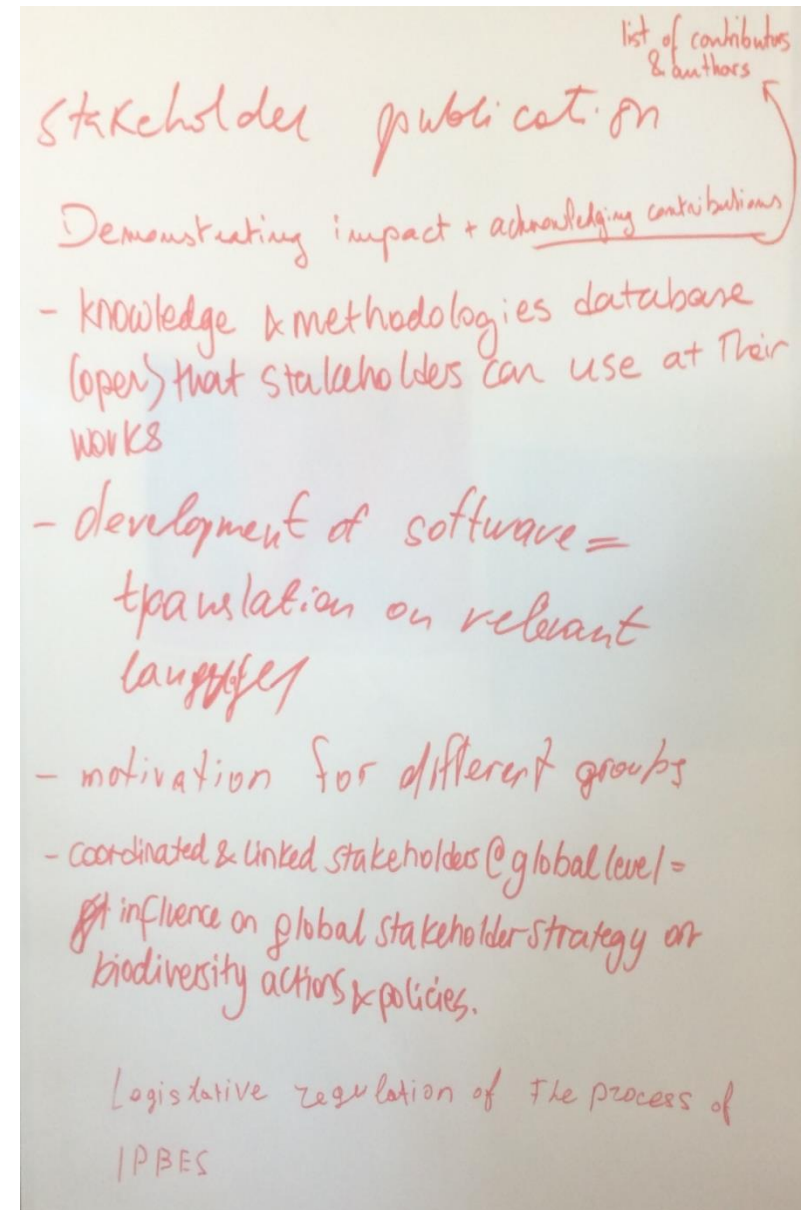 list of contributors
& authors
stakeholder publication
Demonstrating impact + acknowledging contributions
- knowledge & methodologies database
(open) that stakeholders can use at their
works
- development of software =
translation on relevant
- motivation for different groups
- coordinated & linked stakeholders @ global level =
influence on global stakeholder strategy on
biodiversity actions & policies.
Legislative regulation of the process of
IPBES